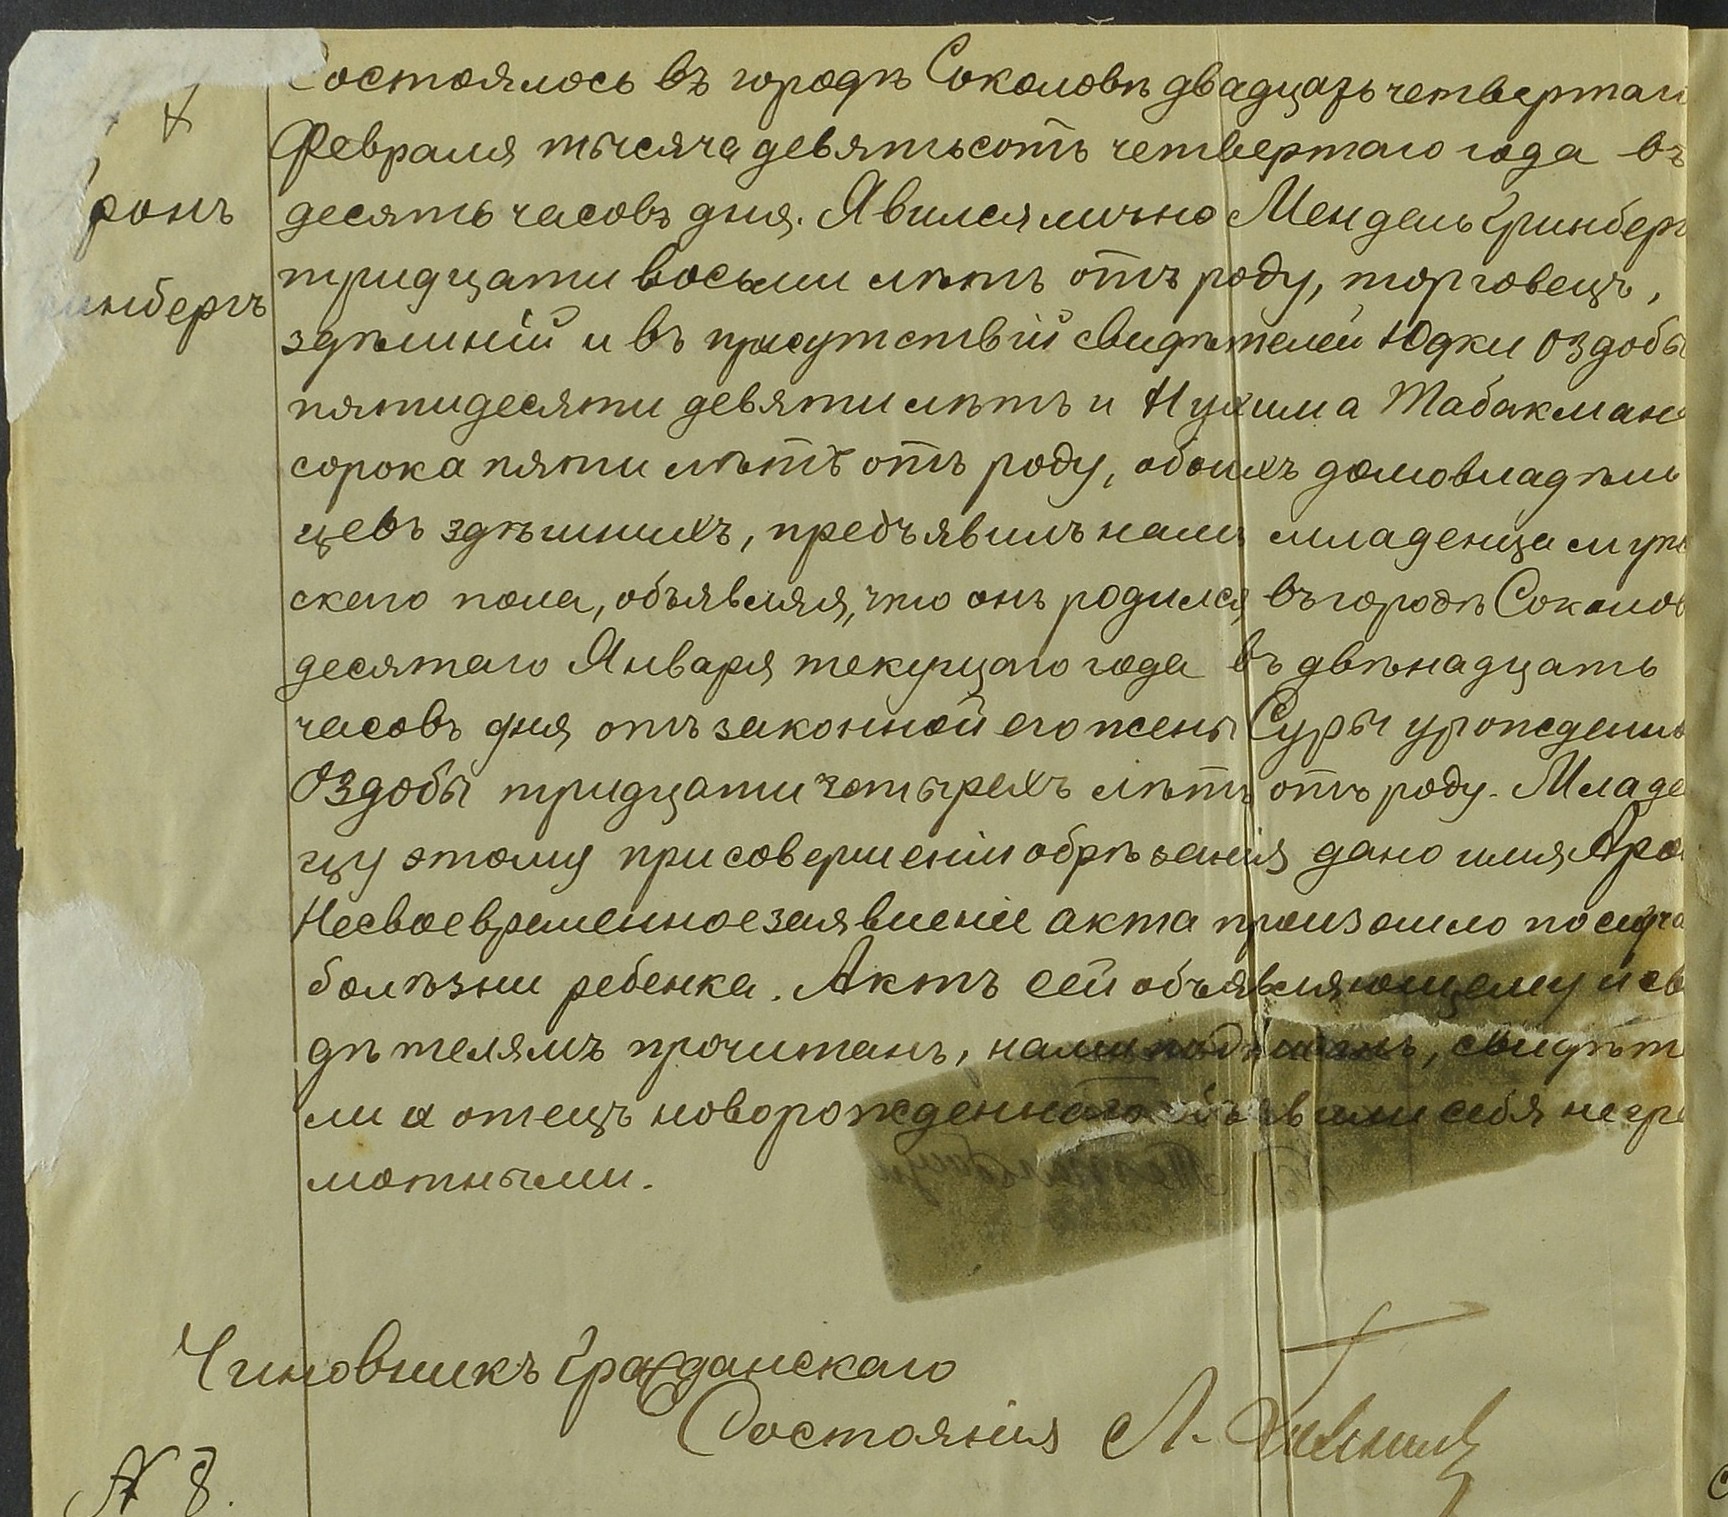 Состоялось въ городѣ Соколовѣ двадцать четвертаго
Февраля тысяча девятьсотъ четвертаго года въ
ронъ
десять часовъ дня. Явился лично Мендель Гринберг
инбергъ
тридцати восьми лѣтъ отъ роду, торговецъ,
здѣшній и въ присутствій свидѣтелей Юдки Оздобы
пятидесяти девяти лѣтъ и Нухима Табакмана
сорока пяти лѣтъ отъ роду, обоихъ домовладѣль
цевъ здѣшнихъ, предъявилъ намъ младенца муж
скаго пола, объявляя, что онъ родился въ городѣ Соколов
десятаго Января текущаго года въ двѣнадцать
часовъ дня отъ законной его жены Суры урожденно
Оздобы тридцати четырехъ лѣтъ отъ роду. Младе
цу этому при совершеніи обрѣзанія дано имя Аро
Несвоевременное заявленіе акта произошло по случа
болѣзни ребенка. Актъ сей объявляющему и св
дѣтелямъ прочитанъ, нами подписанъ, свидѣт
ли и отецъ новорожденнаго объявили себя негра
мотными.
Чиновникъ Гражданскаго
Состоянія Л.
N 8.